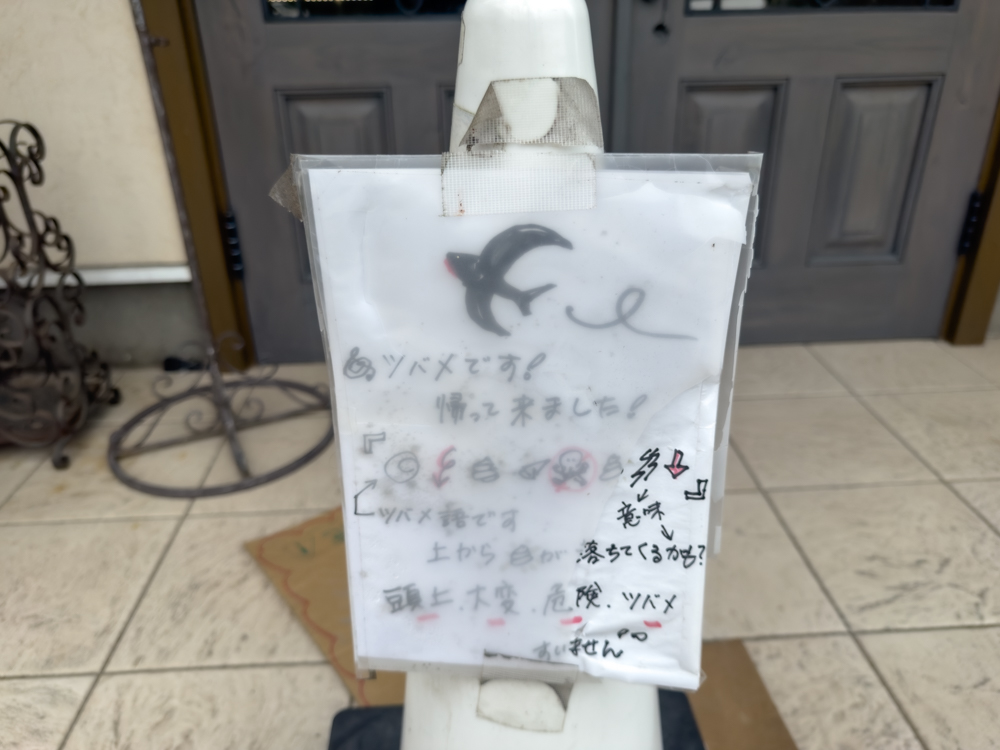 ツバメです!
帰って来ました!
『
』
意味
ツバメ語です
上から が 落ちてくるかも?
頭上.大変.危険.ツバメ
すいません